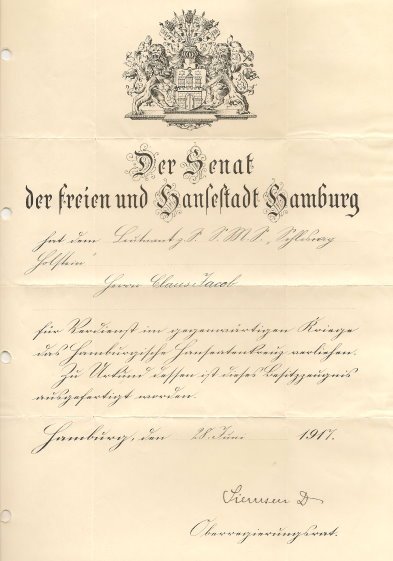 Der Senat
der freien und Hansestadt Hamburg
hat dem Leutnant z. S. S.M.S. „Schleswig
Holstein"
Herrn Claus Jacob
für Verdienst im gegenwärtigen Kriege
das Hamburgische Hanseatenkreuz verliehen.
Zu Urkund dessen ist dieses Besitzzeugnis
ausgefertigt worden.
Hamburg, den 28. Juni 1917.
Oberregierungsrat.